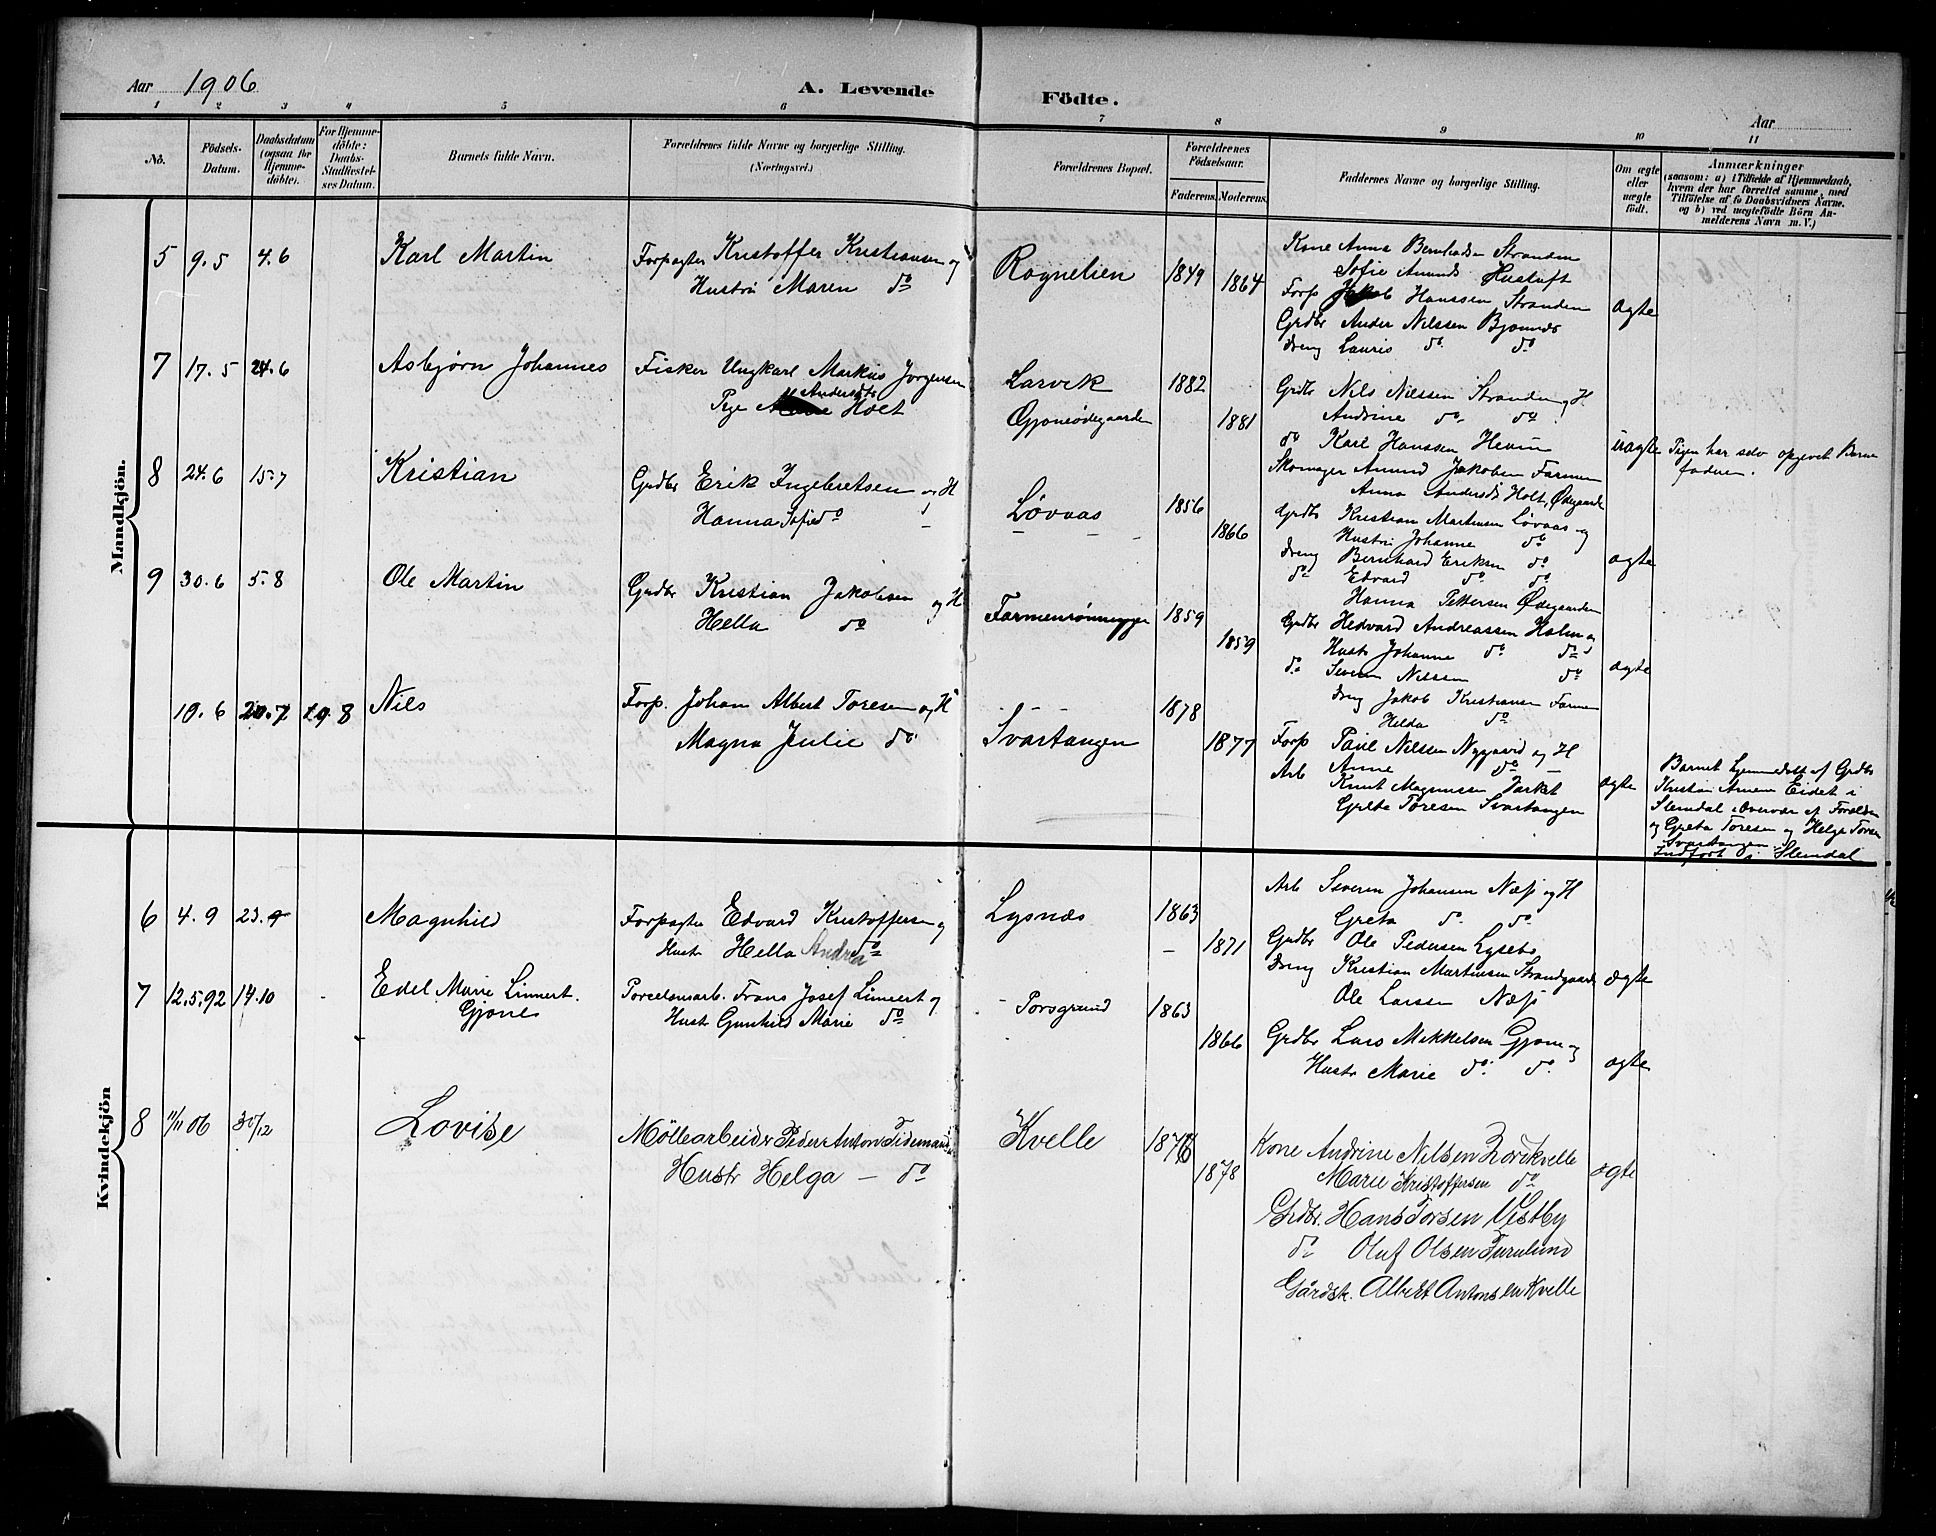 Aar 1906
A. Levende Födte.
Aar
1 2 3 4 5 6 7 8 9 10 11
No.
Födsels-Datum.
Daabsdatum (ogsaa for Hjemmedöbte).
For Hjemmedöbte: Daabs-Stadfæstelses Datum.
Barnets fulde Navn.
Forældrenes fulde Navne og borgerlige Stilling.
(Næringsvei.)
Forældrenes Bopæl.
Forældrenes Födselsaar.
Faderens. Moderens.
Faddernes Navne og borgerlige Stilling.
Om ægte eller uægte födt.
Anmærkninger
(saasom: a) i Tilfælde af Hjemmedaab, hvem der har forrettet samme, med Tilföielse af to Daabsvidners Navne, og b) ved uægtefödte Börn Anmelderens Navn m. V.)
Mandkjön.
5 9.5 4.6 Karl Martin
Forpagter Kristoffer Kristiansen og
Hustru Maren do
Ragnelien 1849 1864
Kone Anna Stranden
Sofie Amunds Hustuft
Forp Jakob Hanssen Stranden
Grdbr Ander Nilssen Bjønnes
dreng Lauris do do
ægte
7 17.5 24.6 Asbjørn Johannes
Fisker Ungkarl Markus Jørgensen
Pige Andersdtr Holt
Larvik 1882
Gjonesødegaarden 1881
Grdbr Nils Nilssen Stranden og H.
Andrine do do
do Karl Hanssen Hevum
Skomager Amund Jakobsen Farmen
Anna Andersd Holt, Ødegaarde
uægte
Pigen har selv opgivet Barne
faderen.
8 24.6 15.7 Kristian
Grdbr Erik Ingebretsen og H
Hanna Sofie do
Løvaas 1856 1866
Grdbr Kristian Martinsen Løvaas og
Hustru Johanne do
dreng Bernhard Eriksen do
do Edvard do do
Hanna Pettersen Ødegaarden
ægte
9 30.6 5.8 Ole Martin
Grdbr Kristian Jakobsen og H
Hella do
Farmenrønningen 1859 1859
Grdbr Hedvard Andreassen Holm og
Hustr Johanne do do
do Severin Nilssen do
dreng Jakob Kristiansen Farmen
Helda do
ægte
10.6 20.7 19.8 Nils
Forp. Johan Albert Toresen og H
Magna Julie do
Svartangen 1878 1877
Forp Paul Nilsen Nygaard og H
Anne do
Arb Knut Magnussen
Greta Toresen Svartangen
ægte
Barnet hjemmedøbt af Grdbr
Kristian Eidet i
Slemdal i Overvær af Foreldren
og Greta Toresen og Helge Torsen
Svartangen.
Indført i Slemdal
Kvindekjön
6 4.9 23.9 Magnhild
Forpagter Edvard Kristoffersen og
Hustr Hella Andrea do
Lysnæs 1863 1871
Arb Severin Johansen Næss og H
Greta do do
Grdbr Ole Pedersen Lysebo
dreng Kristian Martinsen Strandgaarde
Ole Larsen Næss
ægte
7 12.5.92 14.10 Edel Marie Linnert.
Gjønes
Porcelænsarb. Frans Josef Linnert og
Hust Gunhild Marie do
Porsgrund 1863 1866
Grdbr Lars Mikkelsen Gjøne og
Hustr Marie do do
ægte
8 11/11 06 30/12 Lovise
Möllearbeider Peder Anton Tidemands
Hustr Helga — do
Kvelle 1876 1878
Kone Andrine Nilsen
Marie Kristoffersen do
Grdbr. Hans Torsen Vestby
do Oluf Olsen Furulund
Gårdsk. Albert Antonsen Kvelle
ægte